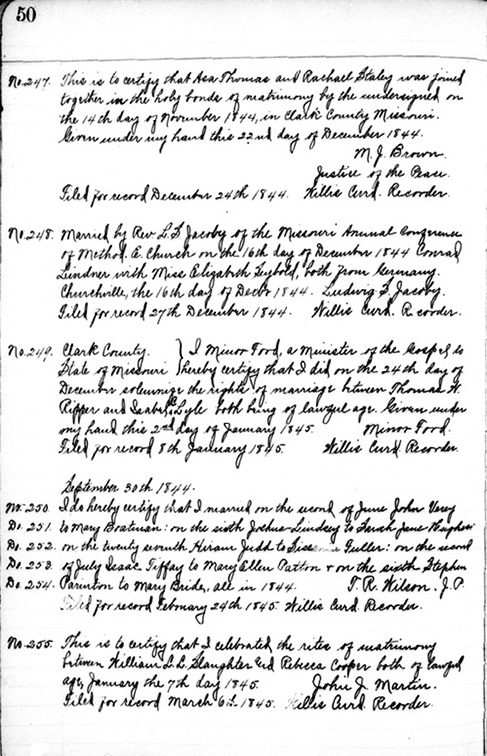 50
No. 247. This is to certify that Asa Thomas and Rachael Staley was joined
together in the holy bonds of matrimony by the undersigned on
the 14th day of November 1844, in Clark County Missouri.
Given under my hand this 22nd day of December 1844.
M. J. Brown
Justice of the Pease.
Filed for record December 24th 1844. Willis Curd. Recorder.
No. 248. Married by Rev L. S. Jacoby of the Missouri Annual Conference
of Method. E. Church on the 16th day of December 1844 Conrad
Lindner with Miss Elizabeth Seybold, both from Germany.
Churchville, the 16th day of Decbr 1844. Ludwig S. Jacoby.
Filed for record 27th December 1844. Willis Curd. Recorder.
No. 249. Clark County. } I Minor Food, a Minister of the Gospel do
State of Missouri } hereby certify that I did on the 24th day of
December solemnize the rights of marriage between Thomas W.
and Lyle both being of lawful age. Given under
my hand this 2nd day of January 1845. Minor Food.
Filed for record 8th January 1845. Willis Curd Recorder.
September 30th 1844.
No. 250. I do hereby certify that I married on the second of June John
Do. 251. to Mary Boatman: on the sixth Joshua Lindsey to Sarah Jane
Do. 252. on the twenty seventh Hiram Judd to Fuller: on the second
Do. 253. of July Isaac Tiffay to Mary Ellen Patton & on the sixth Stephen
Do. 254. to Mary Bride, all in 1844. T. R. Wilson. J. P.
Filed for record February 24th 1845. Willis Curd. Recorder.
No. 255. This is to certify that I celebrated the rites of matrimony
between William L. L. Slaughter and Rebeca Cooper both of lawful
age, January the 7th day 1845. John J. Martin.
Filed for record March 6th 1845. Willis Curd Recorder.